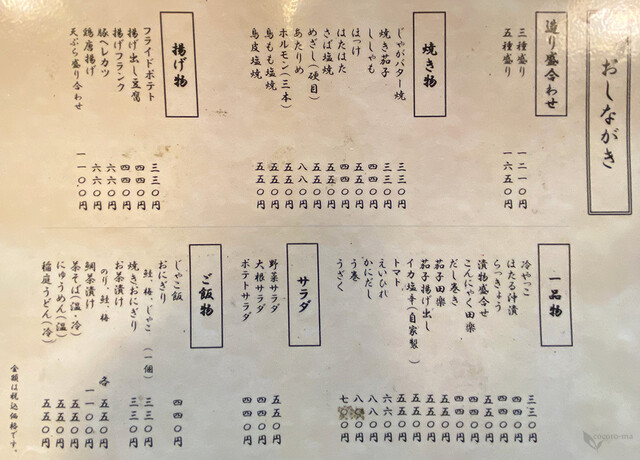 おしながき
造り盛合わせ
三種盛り 一二一〇円
五種盛り 一六五〇円
焼き物
じゃがバター焼 三三〇円
焼き茄子 三三〇円
ししゃも 四四〇円
ほっけ 五五〇円
はたはた 四四〇円
さば塩焼 五五〇円
めざし(硬目) 五五〇円
あたりめ 八八〇円
ホルモン(三本) 五五〇円
鳥もも塩焼 五五〇円
鳥皮塩焼 五五〇円
揚げ物
フライドポテト 三三〇円
揚げ出し豆腐 四四〇円
揚げフランク 四四〇円
豚ヘレカツ 六六〇円
鶏唐揚げ 六六〇円
天ぷら盛り合わせ 一一〇〇円
一品物
冷やっこ 三三〇円
ほたる沖漬 四四〇円
らっきょう 四四〇円
漬物盛合せ 五五〇円
こんにゃく田楽 四四〇円
だし巻き 四四〇円
茄子田楽 五五〇円
茄子揚げ出し 五五〇円
イカ塩辛(自家製) 五五〇円
トマト 五五〇円
えいひれ 六六〇円
かにだし 八八〇円
う巻
うざく
サラダ
野菜サラダ 五五〇円
大根サラダ 四四〇円
ポテトサラダ 四四〇円
ご飯物
じゃこ飯 四四〇円
おにぎり
鮭、梅、じゃこ(一個) 三三〇円
焼きおにぎり 三三〇円
お茶漬け
のり、鮭、梅 各五五〇円
鯛茶漬け 一一〇〇円
茶そば(温・冷) 五五〇円
にゅうめん(温) 五五〇円
稲庭うどん(冷) 五五〇円
金額は税込価格です。